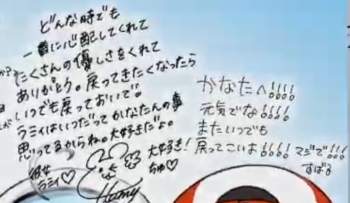 どんな時でも
一番に心配してくれて
たくさんの優しさをくれて
ありがとう。戻ってきたくなったら
いつでも戻っておいで。
ラミィはいつだってかなたんの事
思ってるからね。大好きだよ。
彼女
ラミィ♡
大好き!
ちゅ♡
かなたへ!!!!
元気でな!!!!
またいつでも
戻ってこいよ!!!! マジで!!!
すばる